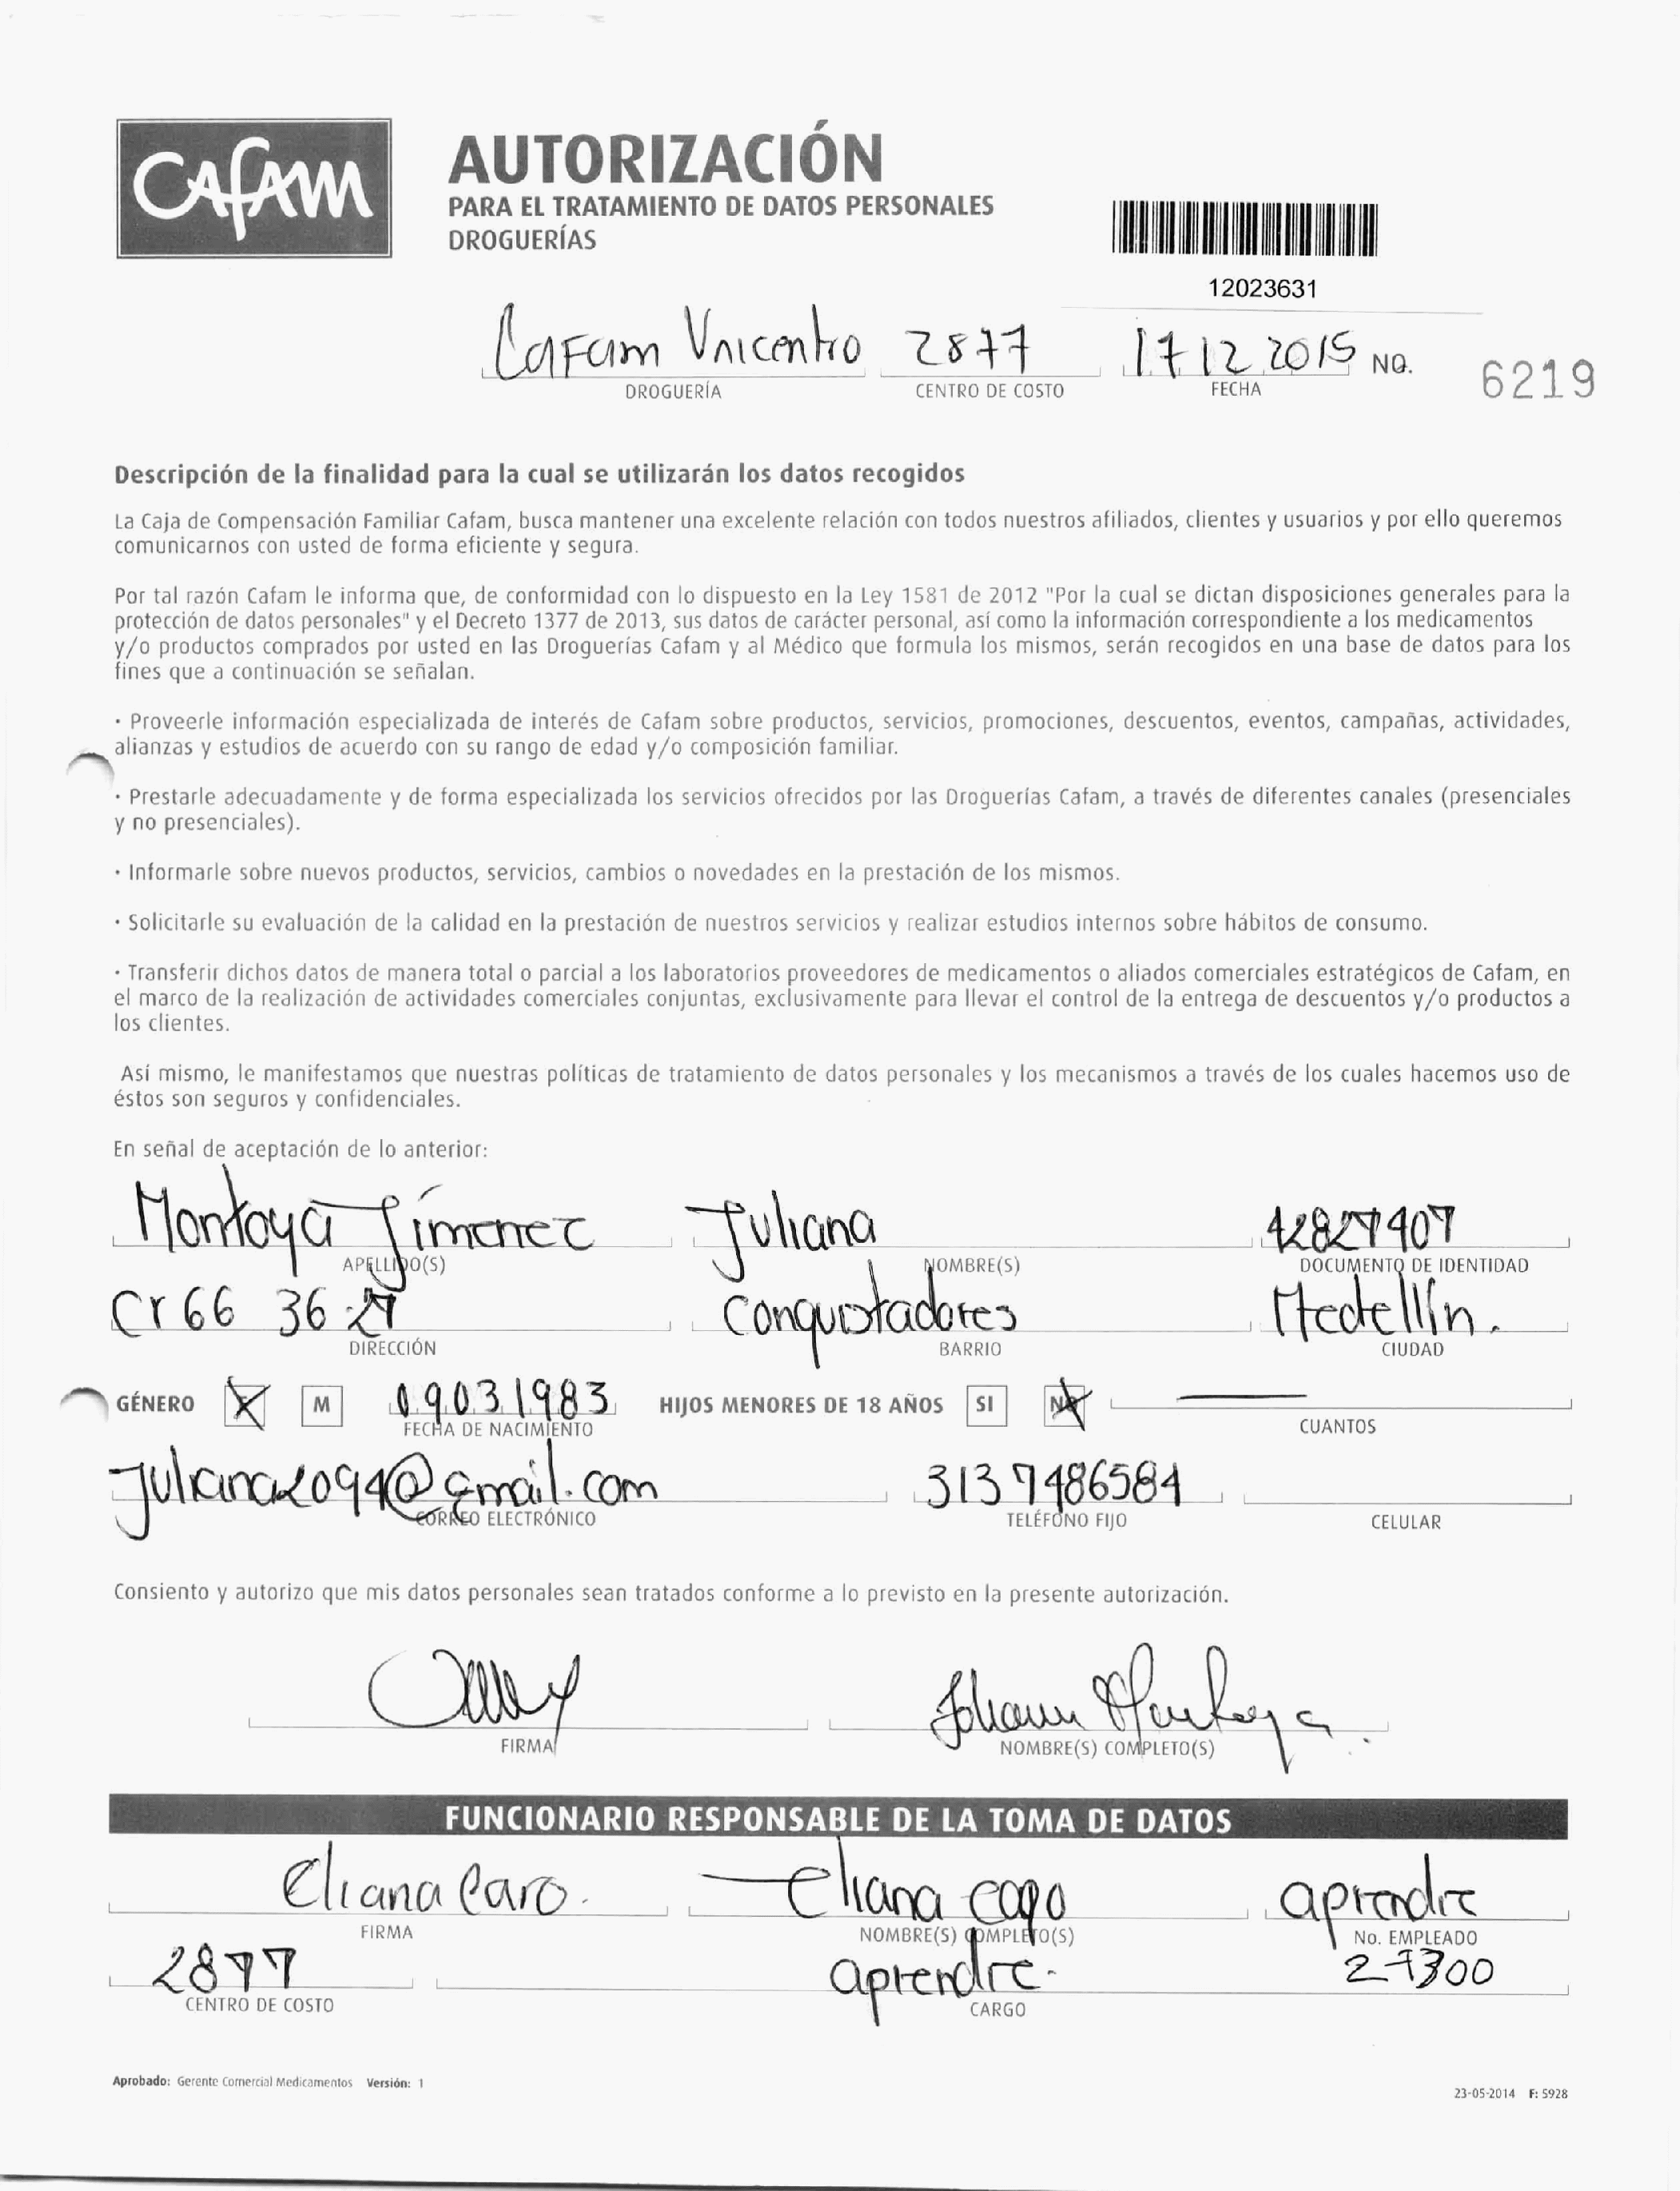 CAFAM
AUTORIZACIÓN
PARA EL TRATAMIENTO DE DATOS PERSONALES
DROGUERÍAS
12023631
Cafam Unicentro 2877 17 12 2015 NO. 6219
DROGUERÍA CENTRO DE COSTO FECHA
Descripción de la finalidad para la cual se utilizarán los datos recogidos
La Caja de Compensación Familiar Cafam, busca mantener una excelente relación con todos nuestros afiliados, clientes y usuarios y por ello queremos
comunicarnos con usted de forma eficiente y segura.
Por tal razón Cafam le informa que, de conformidad con lo dispuesto en la Ley 1581 de 2012 "Por la cual se dictan disposiciones generales para la
protección de datos personales" y el Decreto 1377 de 2013, sus datos de carácter personal, así como la información correspondiente a los medicamentos
y/o productos comprados por usted en las Droguerías Cafam y al Médico que formula los mismos, serán recogidos en una base de datos para los
fines que a continuación se señalan.
· Proveerle información especializada de interés de Cafam sobre productos, servicios, promociones, descuentos, eventos, campañas, actividades,
alianzas y estudios de acuerdo con su rango de edad y/o composición familiar.
· Prestarle adecuadamente y de forma especializada los servicios ofrecidos por las Droguerías Cafam, a través de diferentes canales (presenciales
y no presenciales).
· Informarle sobre nuevos productos, servicios, cambios o novedades en la prestación de los mismos.
· Solicitarle su evaluación de la calidad en la prestación de nuestros servicios y realizar estudios internos sobre hábitos de consumo.
· Transferir dichos datos de manera total o parcial a los laboratorios proveedores de medicamentos o aliados comerciales estratégicos de Cafam, en
el marco de la realización de actividades comerciales conjuntas, exclusivamente para llevar el control de la entrega de descuentos y/o productos a
los clientes.
Así mismo, le manifestamos que nuestras políticas de tratamiento de datos personales y los mecanismos a través de los cuales hacemos uso de
éstos son seguros y confidenciales.
En señal de aceptación de lo anterior:
Montoya Jímenez Juliana 42827907
APELLIDO(S) NOMBRE(S) DOCUMENTO DE IDENTIDAD
Cr 66 36 27 Conquistadores Medellín.
DIRECCIÓN BARRIO CIUDAD
GÉNERO M 09031983 HIJOS MENORES DE 18 AÑOS SI NO
FECHA DE NACIMIENTO CUANTOS
juliana2094@gmail.com 3137486584
CORREO ELECTRÓNICO TELÉFONO FIJO CELULAR
Consiento y autorizo que mis datos personales sean tratados conforme a lo previsto en la presente autorización.
Montoya
FIRMA NOMBRE(S) COMPLETO(S)
FUNCIONARIO RESPONSABLE DE LA TOMA DE DATOS
Eliana Caro. Eliana caro aprendiz
FIRMA NOMBRE(S) COMPLETO(S) No. EMPLEADO
2877 aprendiz. 27300
CENTRO DE COSTO CARGO
Aprobado: Gerente Comercial Medicamentos Versión: 1
23-05-2014 F: 5928